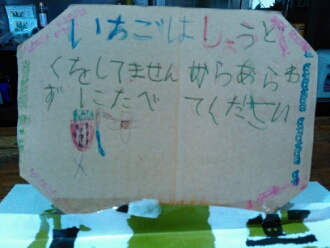 いちごはしょうど
くをしてませんからあらわ
ずにたべてください